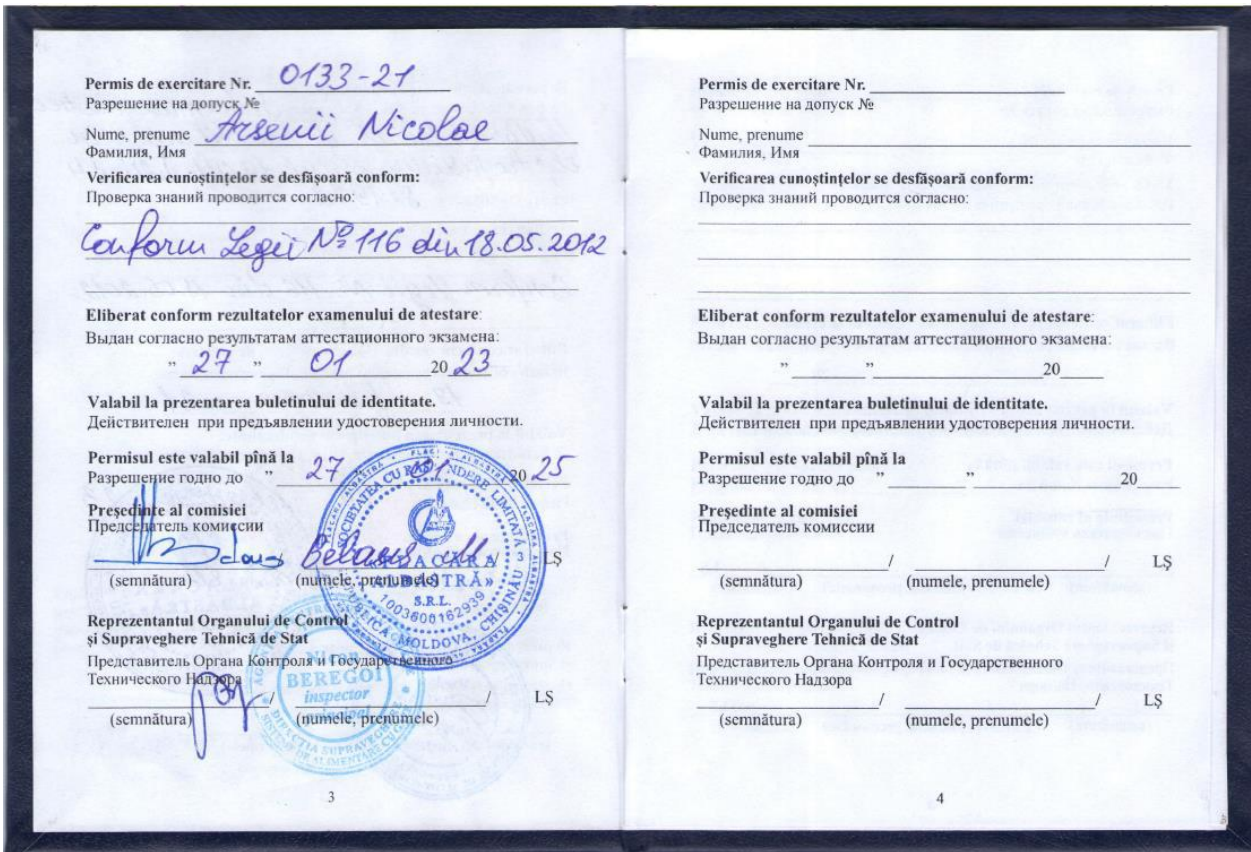 Permis de exercitare Nr. 0133-21
Разрешение на допуск №
Nume, prenume Arsenii Nicolae
Фамилия, Имя
Verificarea cunoștințelor se desfășoară conform:
Проверка знаний проводится согласно:
Conform Legii № 116 din 18.05.2012
Eliberat conform rezultatelor examenului de atestare:
Выдан согласно результатам аттестационного экзамена:
" 27 " 01 20 23
Valabil la prezentarea buletinului de identitate.
Действителен при предъявлении удостоверения личности.
Permisul este valabil pînă la
Разрешение годно до " 27 " 01 20 25
Președinte al comisiei
Председатель комиссии
/ / LȘ
(semnătura) (numele, prenumele)
SOCIETATEA CU RĂSPUNDERE LIMITATĂ
«FLACĂRA
ALBASTRĂ»
S.R.L.
1003600162939
REPUBLICA MOLDOVA, CHIȘINĂU
Reprezentantul Organului de Control
și Supraveghere Tehnică de Stat
Представитель Органа Контроля и Государственного
Технического Надзора
BEREGOI
inspector
principal
/ / LȘ
(semnătura) (numele, prenumele)
3
Permis de exercitare Nr.
Разрешение на допуск №
Nume, prenume
Фамилия, Имя
Verificarea cunoștințelor se desfășoară conform:
Проверка знаний проводится согласно:
Eliberat conform rezultatelor examenului de atestare:
Выдан согласно результатам аттестационного экзамена:
" " 20
Valabil la prezentarea buletinului de identitate.
Действителен при предъявлении удостоверения личности.
Permisul este valabil pînă la
Разрешение годно до " " 20
Președinte al comisiei
Председатель комиссии
/ / LȘ
(semnătura) (numele, prenumele)
Reprezentantul Organului de Control
și Supraveghere Tehnică de Stat
Представитель Органа Контроля и Государственного
Технического Надзора
/ / LȘ
(semnătura) (numele, prenumele)
4